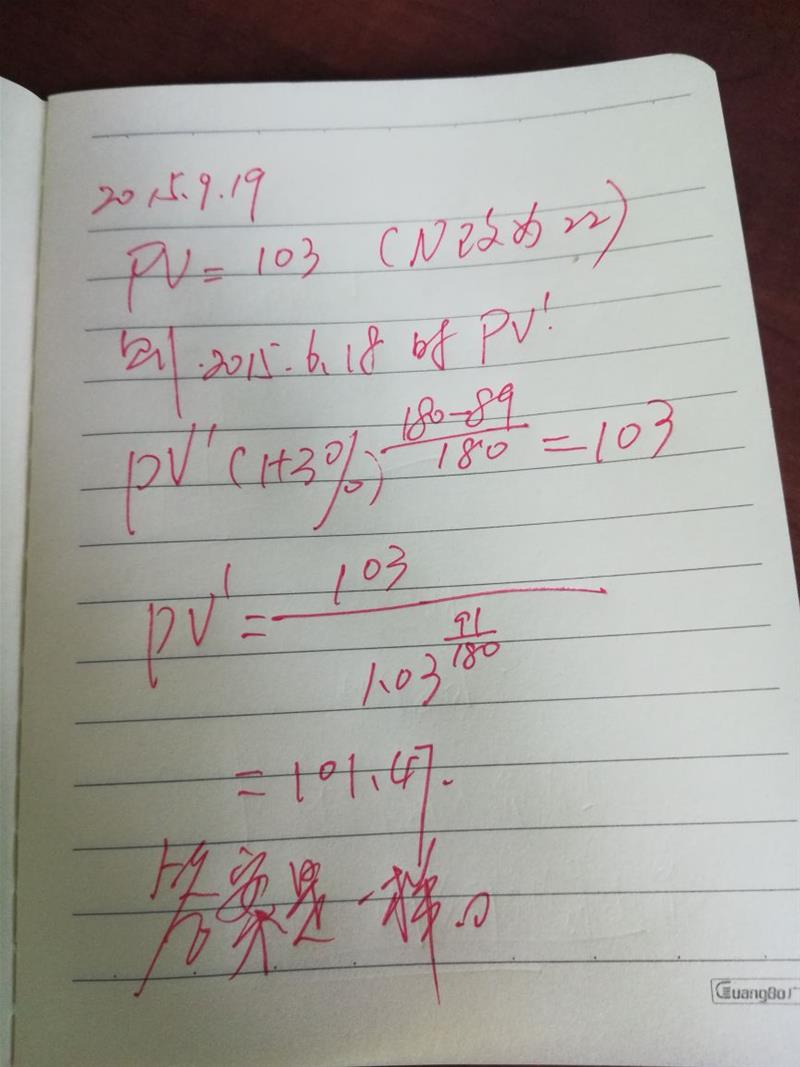 2015.9.19
PV = 103 (N改为22)
则.2015.6.18时PV'.
PV'(1+3%)^{\frac{180-89}{180}} = 103
PV' = \frac{103}{1.03^{\frac{91}{180}}}
= 101.47.
答案是一样的
GuangBo